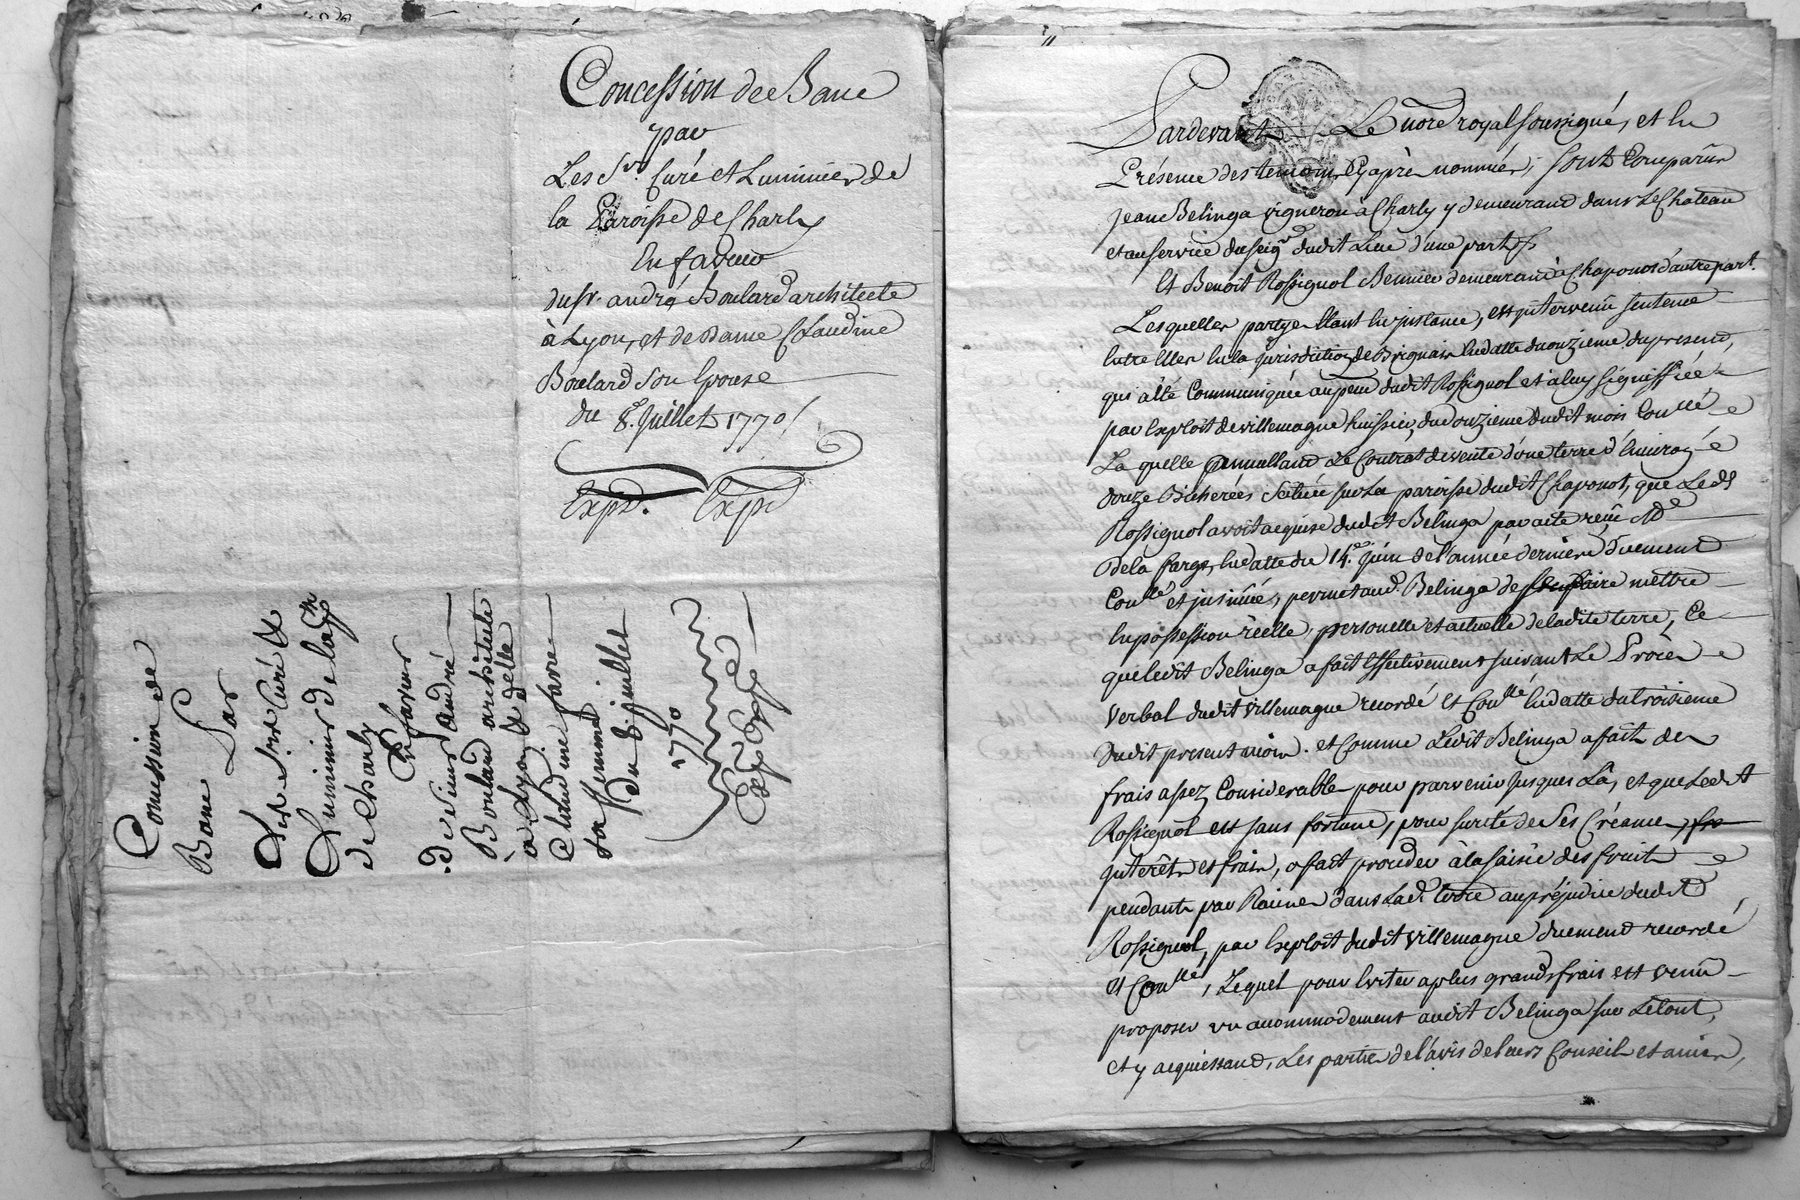 Concession de Banc
par
Les Srs. Curé et Luminiers de
la Paroisse de Charly
En faveur
du sr. andré Boulard architecte
à Lyon, et de Dame Claudine
Boulard son Epouse
du 8e. Juillet 1770
Expd. Expd
Concession de
Banc
Par
Les Sirs Curé &
Luminiers de la psse
de Charly
En faveur
de sieur andré
Boulard architecte
à Lyon & de delle
Claudine favre
sa femme
Du 8 juillet
1770
Pardevant Le nore royal soussigné, et En
Présence des temoins Cy après nommés, sont Comparus
jean Belinga vigneron à Charly y demeurand dans Le Chateau
et au service du seigr dudit Lieu d'une part
Et Benoit Rossignol Bennier demeurand à Chaponos d'autre part.
Lesquelles partyes Etant En jnstance, est jntervenu sentence
Entre Elles En la jurisdiction de Brignais En datte du onzieme du present,
qui a été Communiquée au peur dudit Rossignol et a luy signiffiée
par Exploit de villemagne huissier, du douzieme dudit mois Conllé
La quelle annulland Le Contrat de vente d'une terre d'Environ
douze Bicherées Scituée sur La paroisse dudit Chaponost, que Ledt
Rossignol avoit acquise dudit Belinga par acte reçu Me
Dela farge, En datte du 14e. juin de l'année derniere duement
Conllé et jnsinué, permetand. Belinga de se faire mettre
En possession réelle, personelle et actuelle de ladite terre, Ce
que ledit Belinga a fait Effectivement suivant Le Procès
verbal dudit villemagne recordé et Conllé En datte du troisieme
dudit present mois. et Comme Ledit Belinga a fait des
frais assez Considerables pour parvenir jusques Là, et que Ledit
Rossignol est sans fortune, pour sureté de Ses Créances,
jnterêts et frais, a fait proceder à la saisie des fruits
pendants par Racines dans Lad. terre au préjudice dudit
Rossignol, par Exploit dudit villemagne duement recordé
Et Conllé, Lequel pour Eviter a plus grands frais est venu
proposer un accommodement audit Belinga sur Le tout,
et y acquiessand, Les parties de l'avis de leurs Conseils et amis,